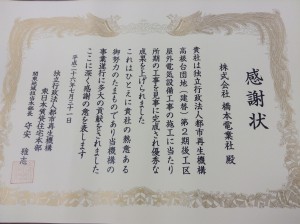 感謝状
株式会社 橋本電業社 殿
貴社は独立行政法人都市再生機構
高根台団地(建替)第2期後工区
屋外電気設備工事の施工に当たり
所期の工事を見事に完成され優秀な
成果を上げられました
これはひとえに貴社の熱意ある
御努力のたまものであり当機構の
事業遂行に多大の貢献をされました
ここに深く感謝の意を表します
平成二十六年七月三十一日
独立行政法人都市再生機構
東日本賃貸住宅本部